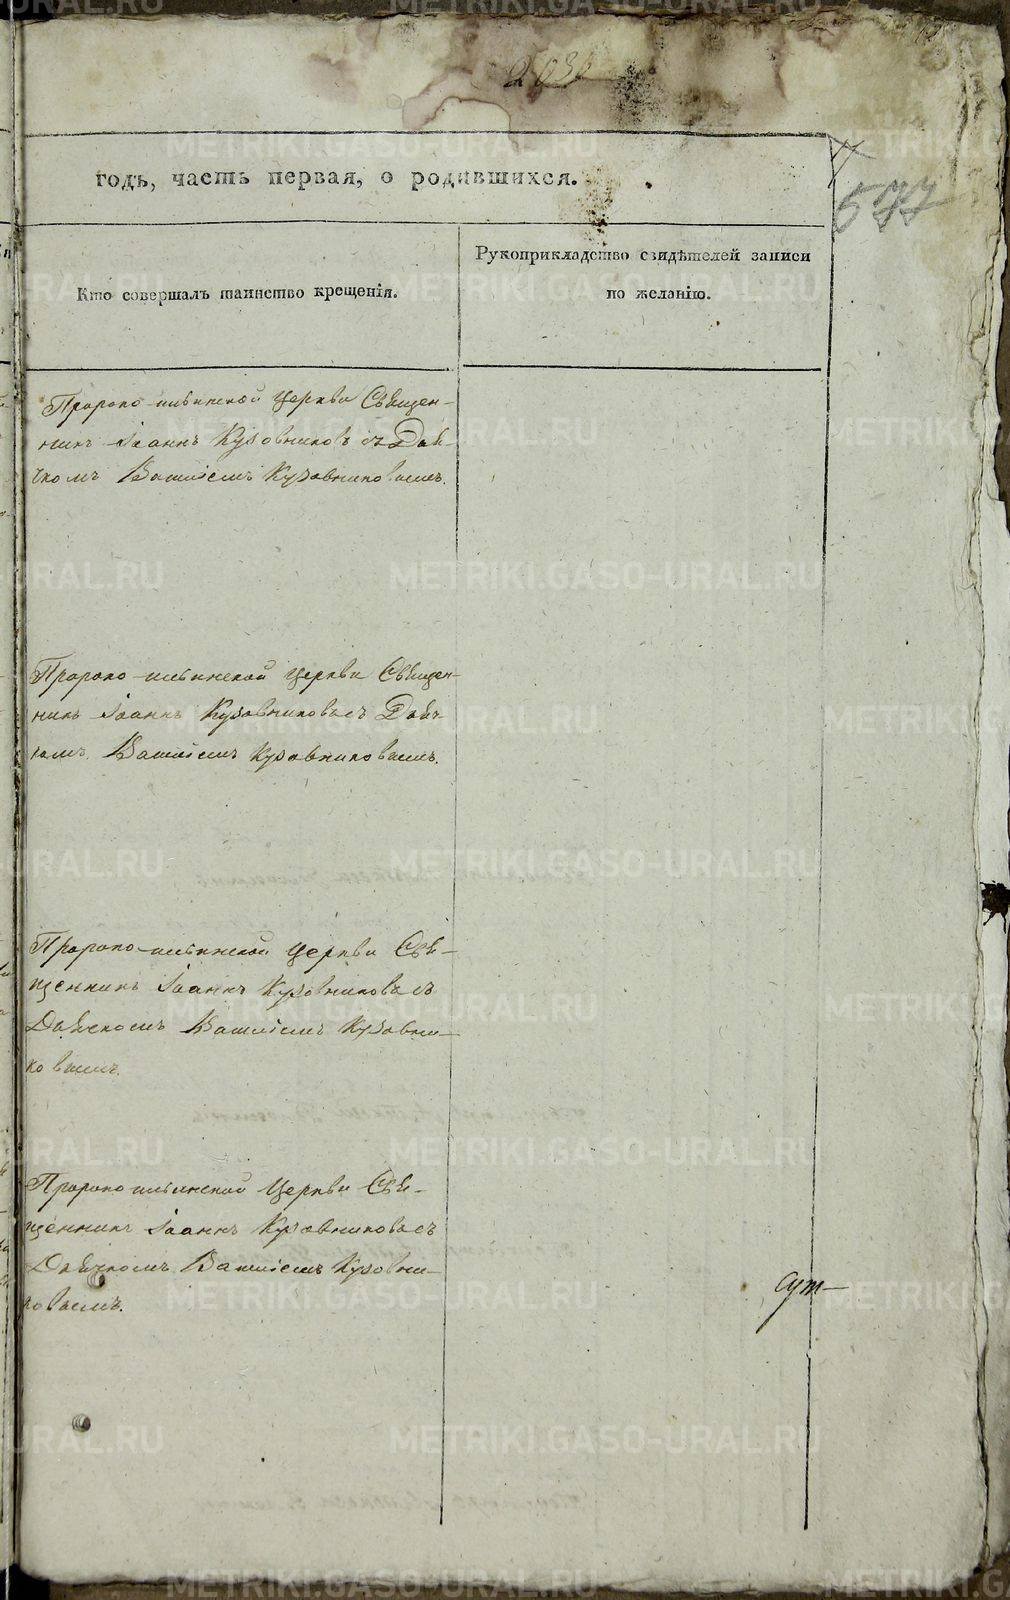 11
577
годъ, часть первая, о родившихся.
Кто совершалъ таинство крещенія.
Рукоприкладство свидѣтелей записи
по желанію.
Пророко-ильинской Церкви Священ-
никъ Іоаннъ Кузовниковъ съ Дья-
чкомъ Василіемъ Кузовниковымъ.
Пророко-ильинской Церкви Священ-
никъ Іоаннъ Кузовниковъ съ Дьяч-
комъ Василіемъ Кузовниковымъ.
Пророко-ильинской Церкви Свя-
щенникъ Іоаннъ Кузовниковъ съ
Дьячкомъ Василіемъ Кузовни-
ковымъ.
Пророко ильинской Церкви Свя-
щенникъ Іоаннъ Кузовниковъ съ
Дьячкомъ Василіемъ Кузовни-
ковымъ.
METRIKI.GASO-URAL.RU